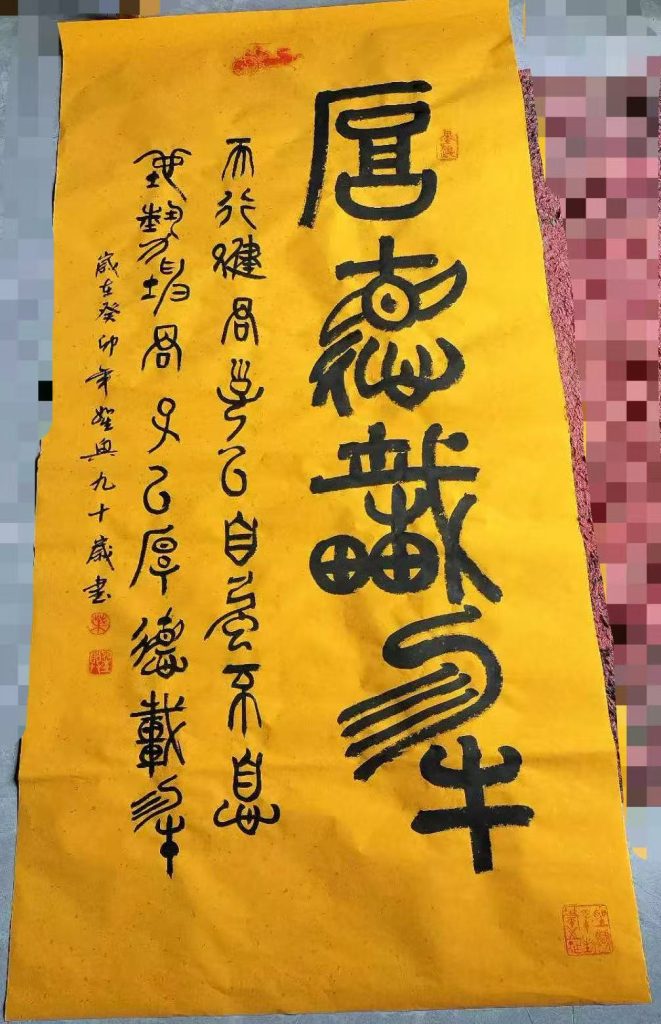 厚德載物
天行健君子以自強不息
地勢坤君子以厚德載物
歲在癸卯年 與九十歲書